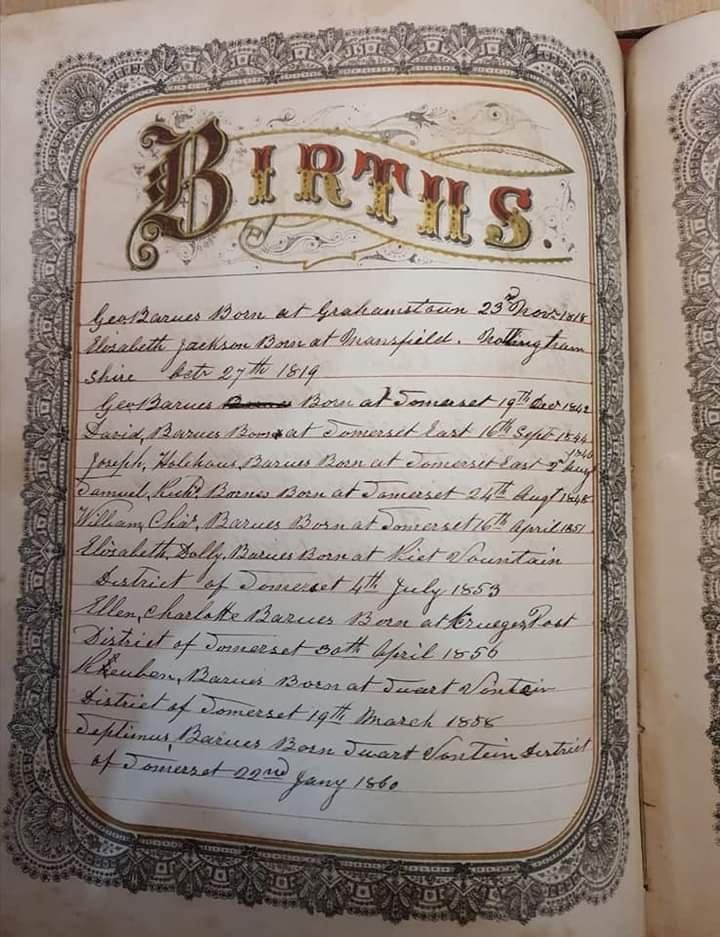 BIRTHS.
Geo Barnes Born at Grahamstown 23rd Nov 1818
Elizabeth Jackson Born at Mansfield. Nottingham
Shire Octr 27th 1819
Geo Barnes Born at Somerset 19th Decr 1842
David, Barnes Born at Somerset East 16th Sept 1844
1846
Joseph, Barnes Born at Somerset East 2d Augt
Samuel, Richd Barnes Born at Somerset 24th Augt 1848
William, Chas, Barnes Born at Somerset 16th April 1851
Elizabeth, Dolly, Barnes Born at Riet Vountain
District of Somerset 4th July 1853
Ellen, Charlotte Barnes Born at Krueger Post
District of Somerset 30th April 1856
Reuben, Barnes Born at Swart Vontein
District of Somerset 19th March 1858
Septimus, Barnes Born Swart Vontein District
of Somerset 22nd Jany 1860